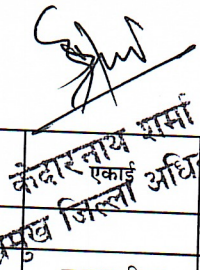 केदारनाथ शर्मा
एकाई
प्रमुख जिल्ला अधि